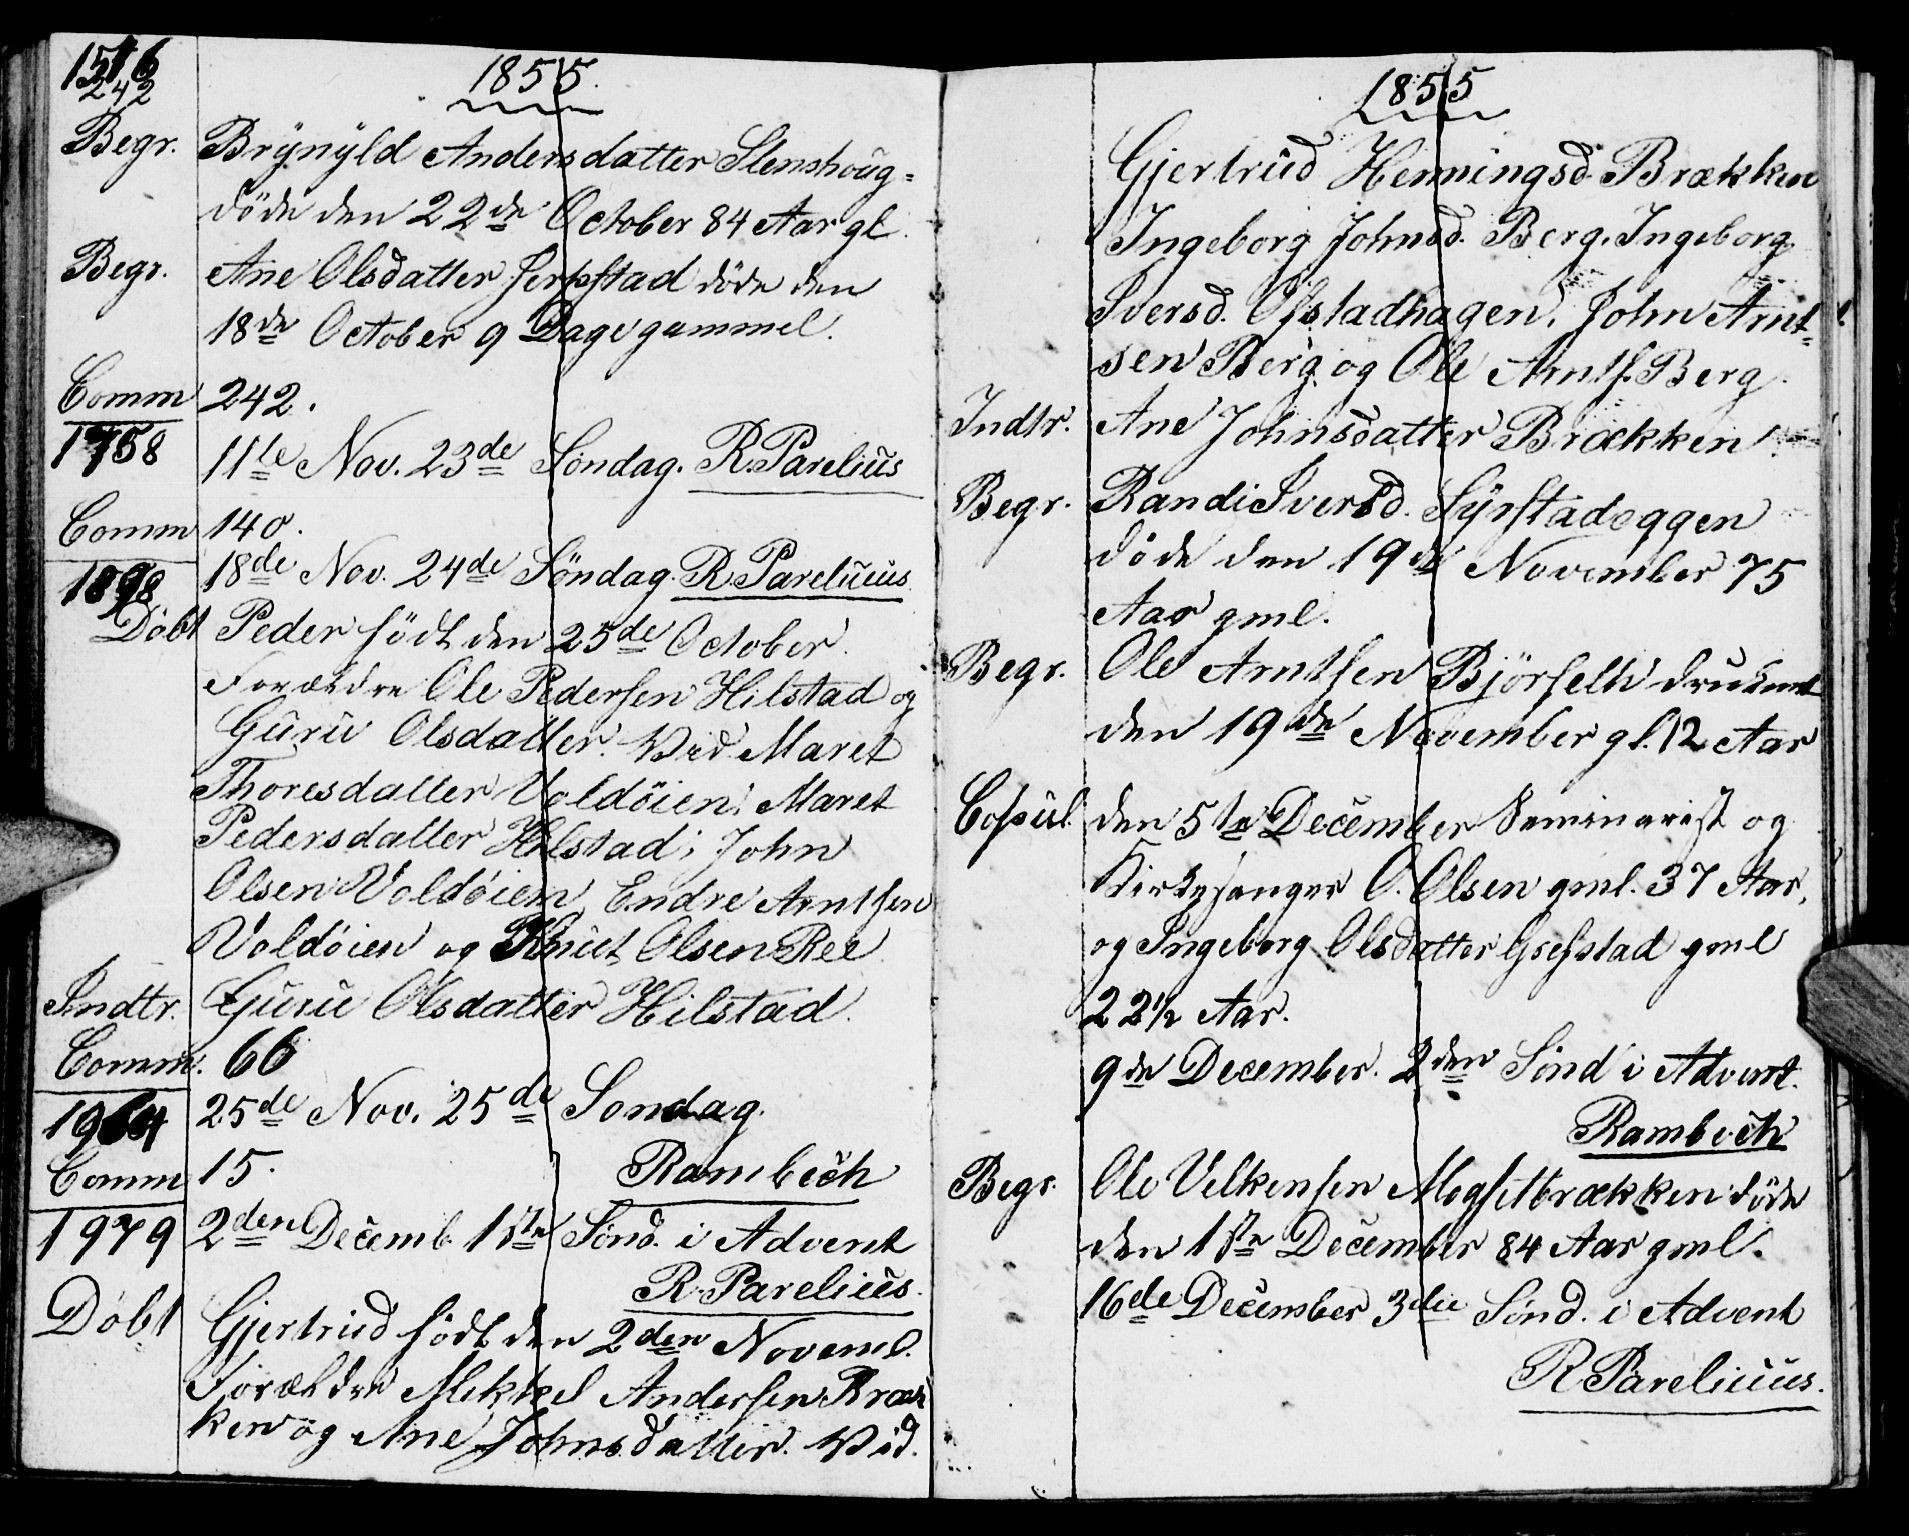 1516
242
1855.
Begr. Brynyld Andersdatter Stenshoug=
døde den 22de October 84 Aar gl.
Begr. Ane Olsdatter Serpstad døde den
18de October 9 Dage gammel.
Comm 242.
1758 11te Nov. 23de Søndag. R. Parelius
Comm 140.
1898 18de Nov. 24de Søndag. R. Parelius
Døbt Peder født den 25de October.
Forældre Ole Pedersen Hilstad og
Guru Olsdatter. Vid. Maret
Thoresdatter Voldøien, Maret
Pedersdatter Hilstad; John
Olsen Voldøien, Endre Arntsen
Voldøien og Knut Olsen Ree
Indtr. Guru Olsdatter Hilstad.
Comm. 66
1964 25de Nov. 25de Søndag.
Comm 15. Rambech
1979 2den Decemb. 1ste Sønd. i Advent
R. Parelius.
Døbt Gjertrud født den 2den Novemb.
Forældre Mikkel Andersen Bræk
ken og Ane Johnsdatter. Vid.
1855
Gjertrud Henningsd. Brækken
Ingeborg Johnsd. Berg. Ingeborg
Iversd. Ofstadhagen. John Arnt=
sen Berg og Ole Arnts. Berg.
Indtr. Ane Johnsdatter Brækken.
Begr. Randi Iversd. Syrstadeggen
døde den 19de November 75
Aar gml.
Begr. Ole Arntsen Bjørsetli druknet
den 19de November gl. 12 Aar
Copul. den 5te December Seminarist og
Kirkesanger O. Olsen gml. 37 Aar,
og Ingeborg Olsdatter gml
22½ Aar.
9de December. 2den Sønd i Advent.
Rambech
Begr. Ole Velkensen Mogsetbrækken døde
den 1ste December 84 Aar gml.
16de December 3die Sønd. i Advent
R. Parelius.